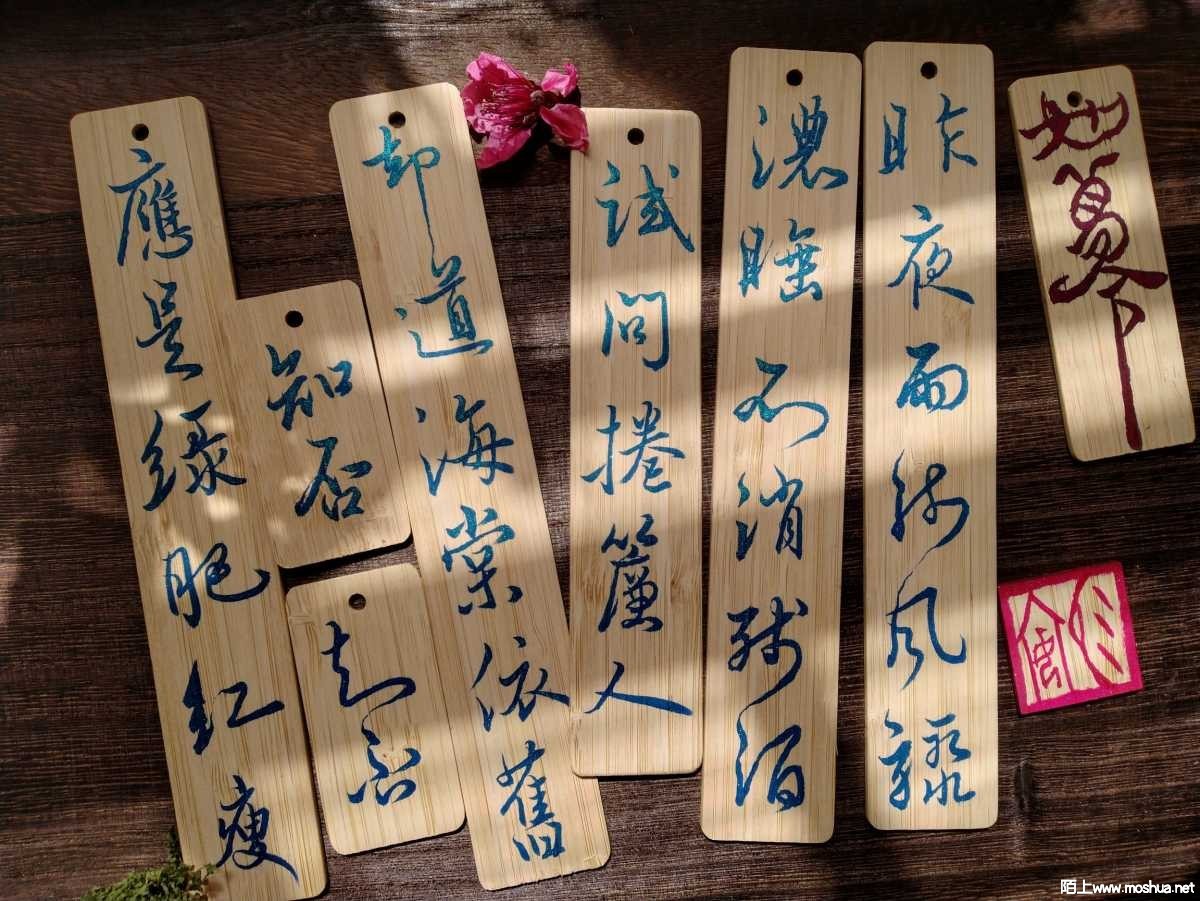 如夢令
昨夜雨疏风驟
濃睡不消殘酒
試問捲簾人
却道海棠依舊
知否
知否
應是綠肥紅瘦
陌上www.moshua.net